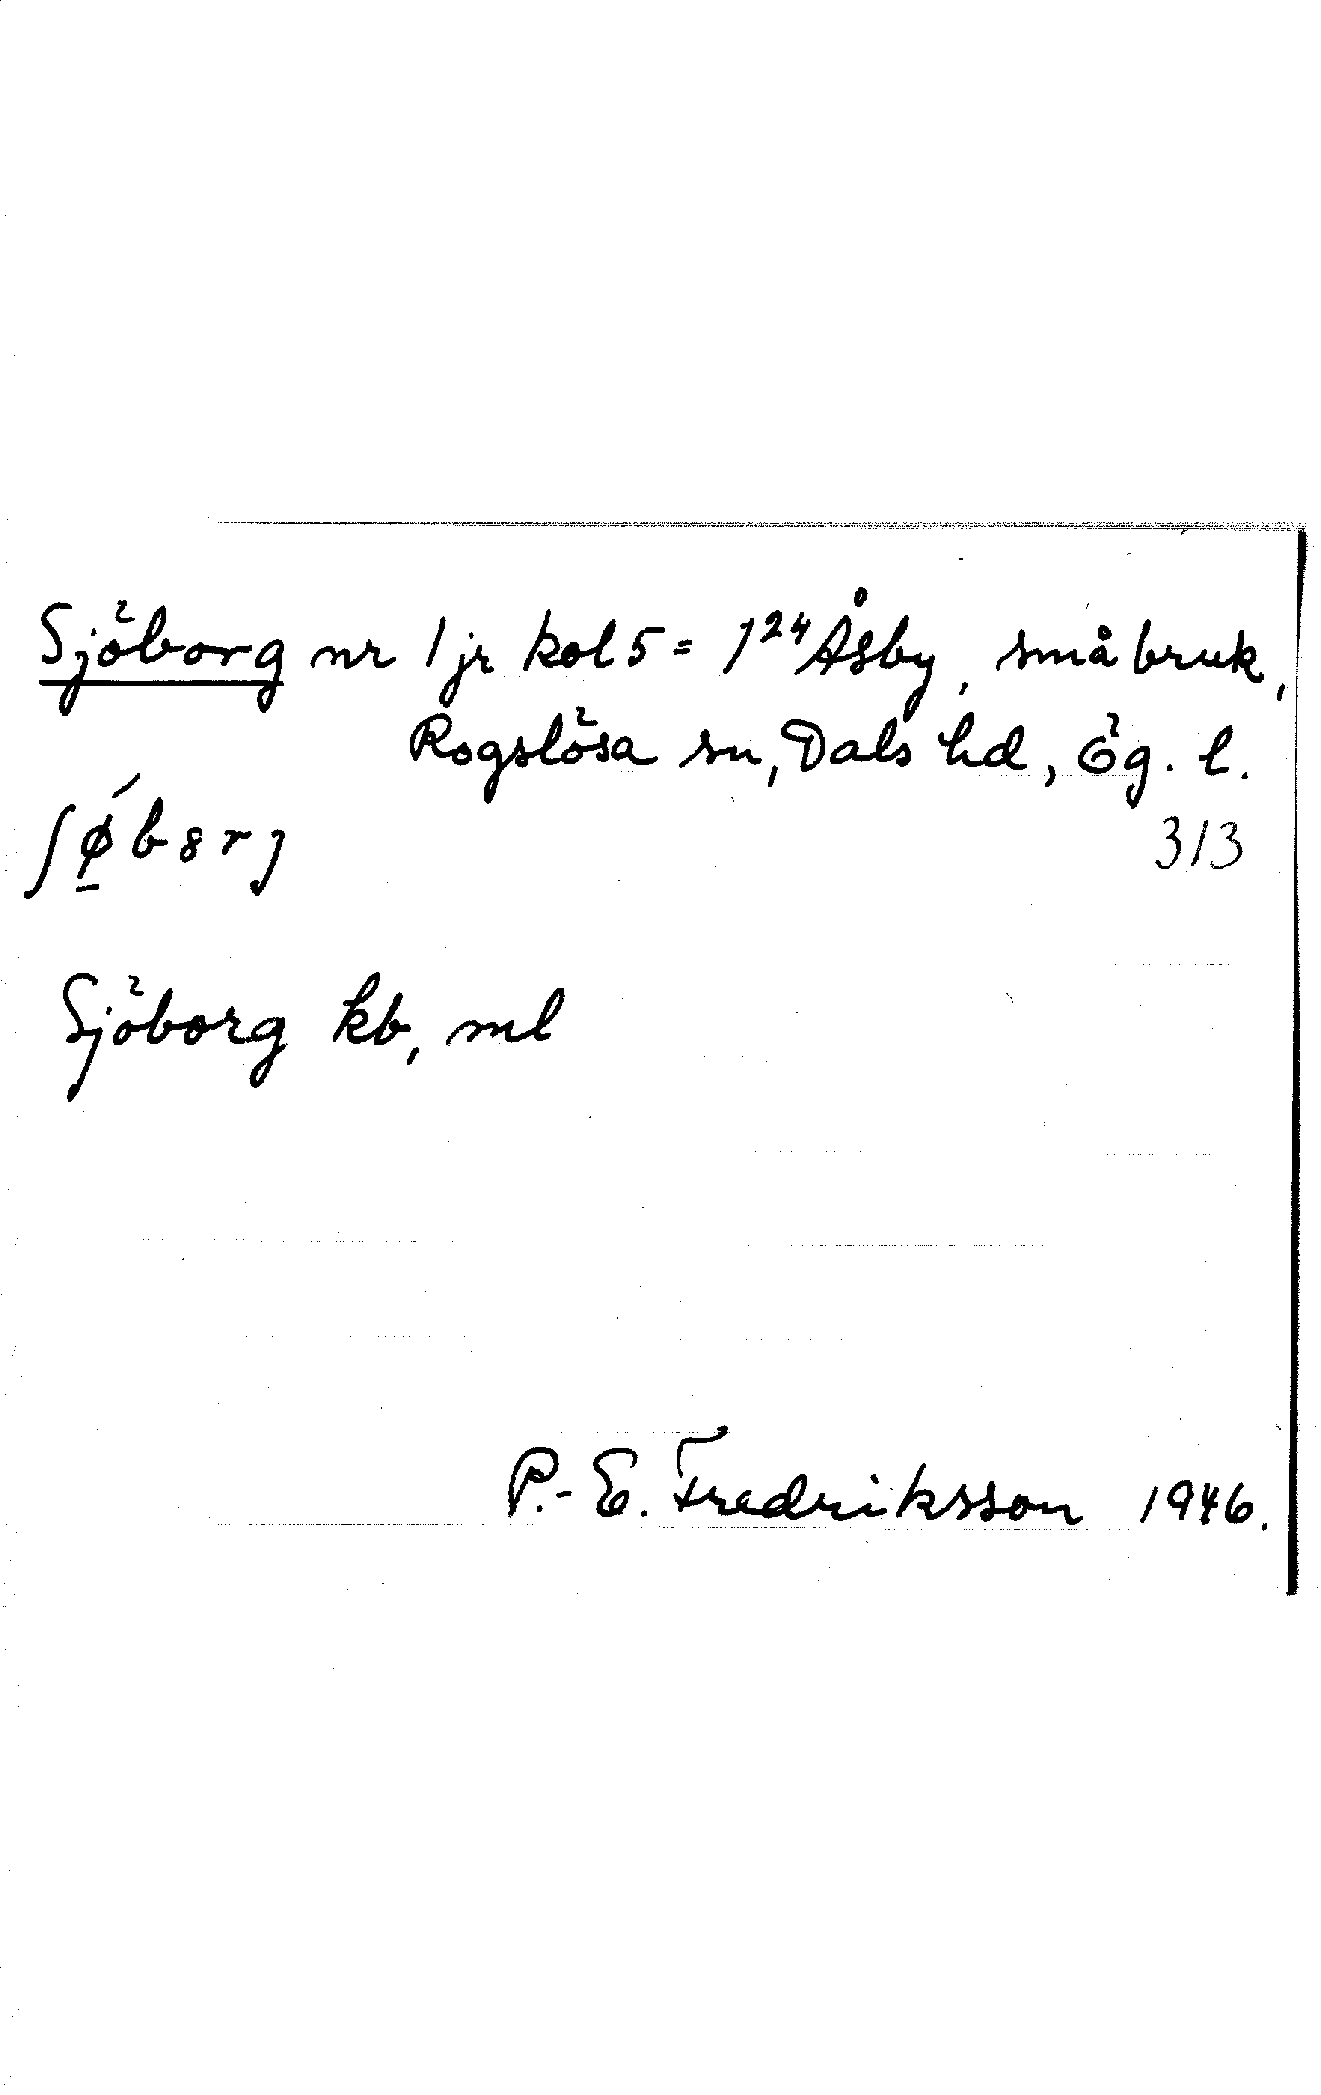 Sjöborg nr 1 jr kol 5 = 1²⁴ Åsby, småbruk,
Rogslösa sn, Dals hd, Ög. l.
ʃǿ̠bȣrj
313
Sjöborg kb, ml
P.-E. Fredriksson 1946.